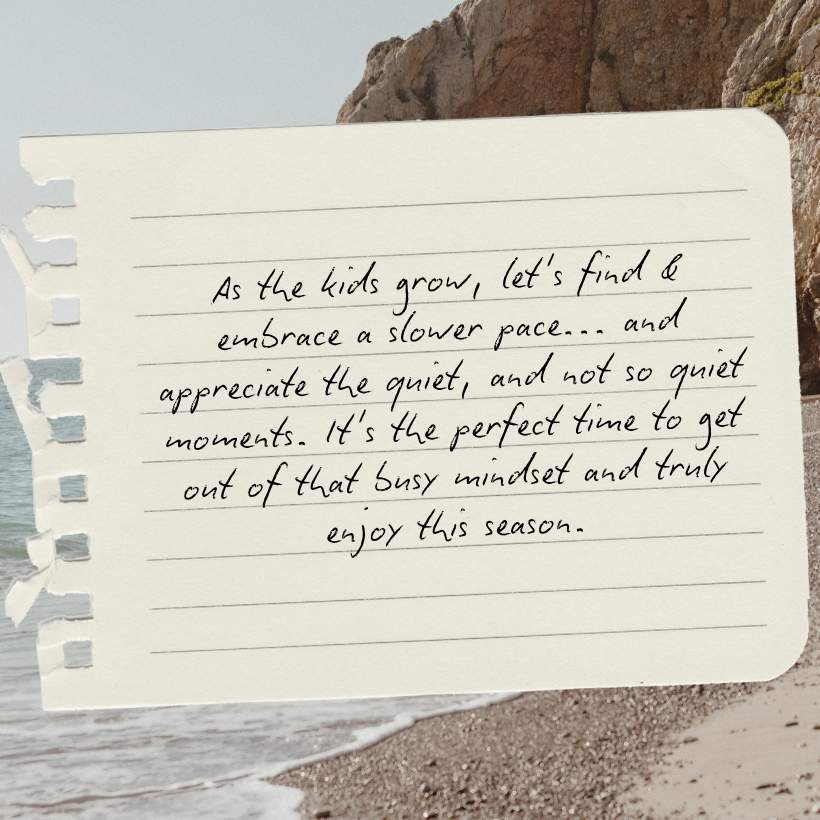 As the kids grow, let's find &
embrace a slower pace... and
appreciate the quiet, and not so quiet
moments. It's the perfect time to get
out of that busy mindset and truly
enjoy this season.